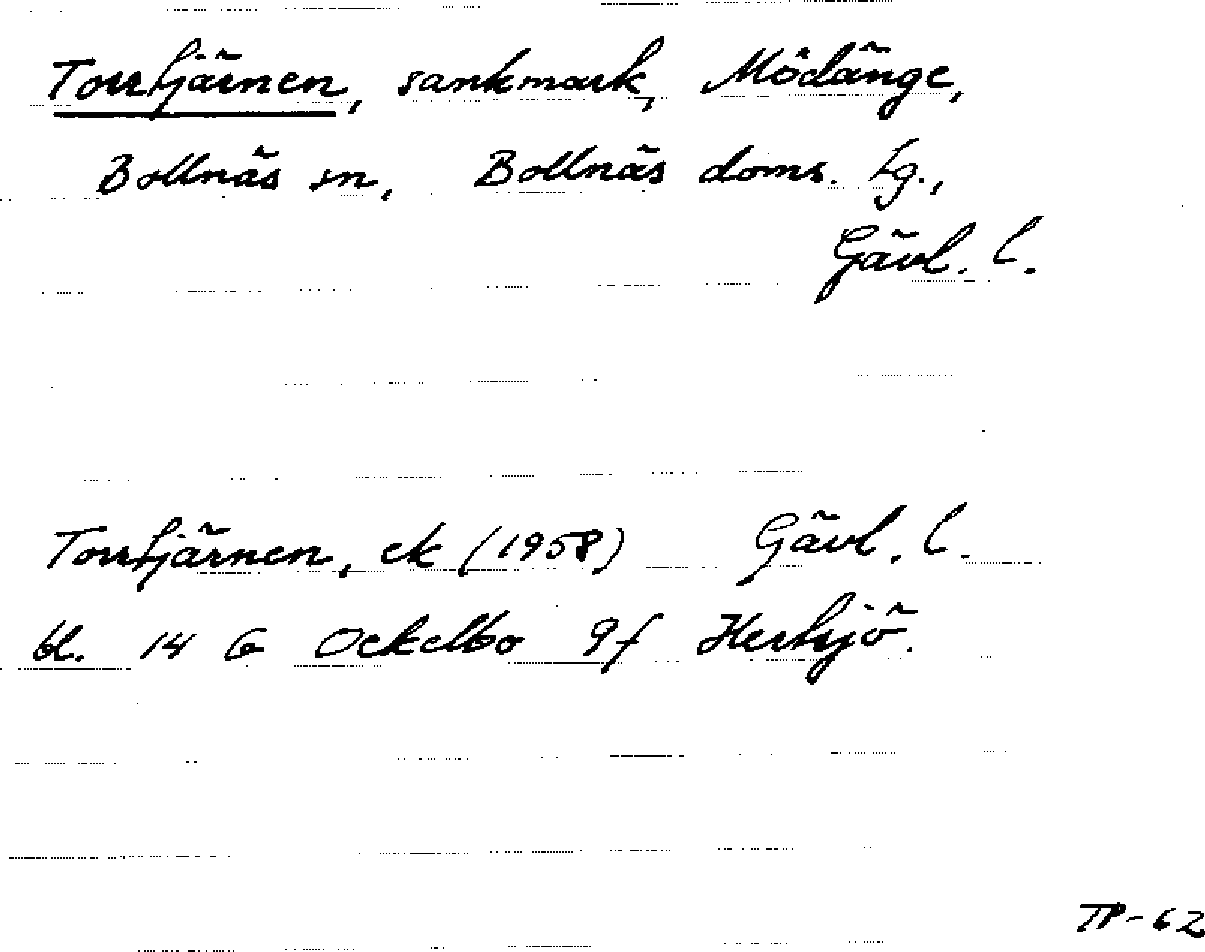 Torrtjärnen, sankmark, Mödänge,
Bollnäs sn, Bollnäs doms. tg.,
Gävl. l.
Torrtjärnen, ek (1958) Gävl. l.
bl. 14 G Ockelbo 9f Hertsjö.
TP-62